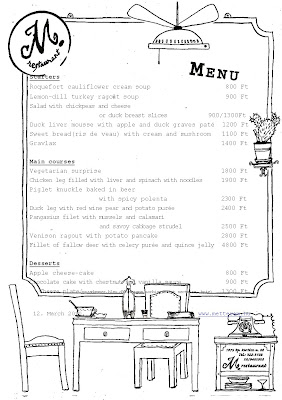 M.
restaurant
MENU
Starters
Roquefort cauliflower cream soup 800 Ft
Lemon-dill turkey ragout soup 900 Ft
Salad with chickpeas and cheese
or duck breast slices 900/1300Ft
Duck liver mousse with apple and duck graves paté 1200 Ft
Sweet bread(riz de veau) with cream and mushroom 1100 Ft
Gravlax 1400 Ft
Main courses
Vegetarian surprise 1800 Ft
Chicken leg filled with liver and spinach with noodles 1900 Ft
Piglet knuckle baked in beer
with spicy polenta 2300 Ft
Duck leg with red wine pear and potato purée 2400 Ft
Pangasius filet with mussels and calamari
and savoy cabbage strudel 2500 Ft
Venison ragout with potato pancake 2800 Ft
Fillet of fallow deer with celery purée and quince jelly 4800 Ft
Desserts
Apple cheese-cake 800 Ft
Chocolate cake with chestnut 900 Ft
Cheese plate 1300 Ft
12. March
M. restaurant